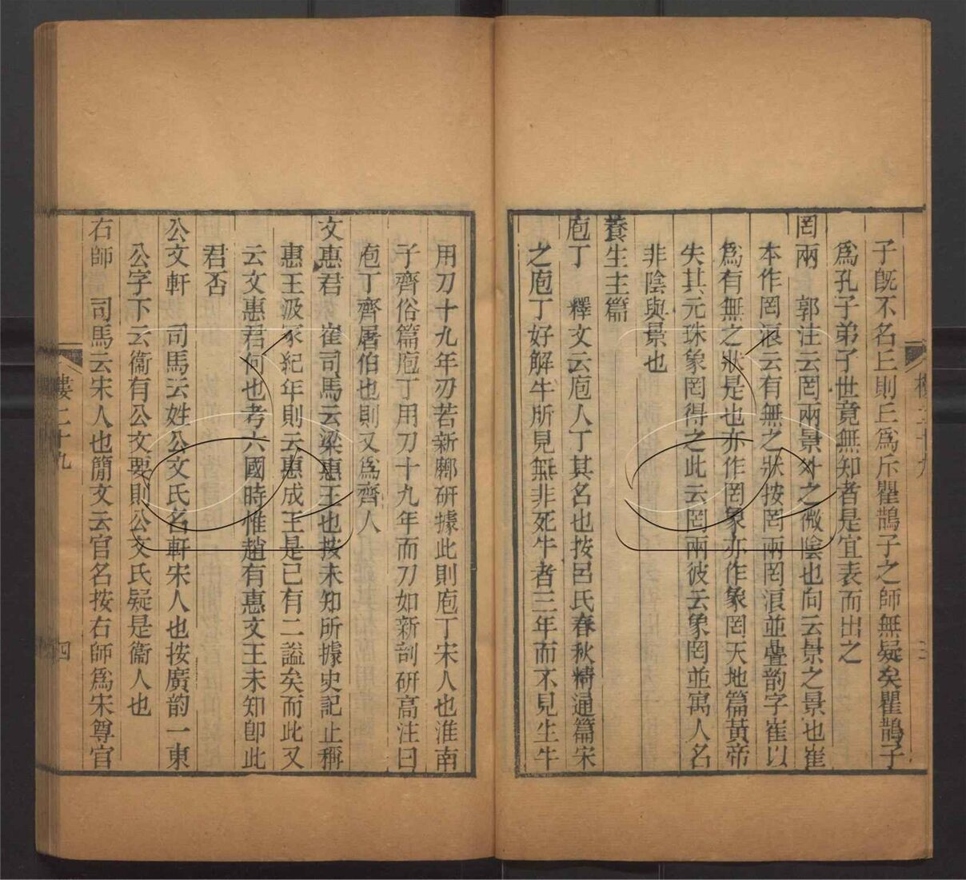 子旣不名丘則丘爲斥瞿鵲子之師無疑矣瞿鵲子
爲孔子弟子世竟無知者是宜表而出之
罔兩　郭注云罔兩景外之微陰也向云景之景也崔
本作罔浪云有無之狀按罔兩罔浪並疊韵字崔以
爲有無之狀是也亦作罔象亦作象罔天地篇黃帝
失其元珠象罔得之此云罔兩彼云象罔並寓人名
非陰與景也
養生主篇
庖丁　釋文云庖人丁其名也按呂氏春秋精通篇宋
之庖丁好解牛所見無非死牛者三年而不見生牛
用刀十九年刃若新鄏研據此則庖丁宋人也淮南
子齊俗篇庖丁用刀十九年而刀如新剖研高注曰
庖丁齊屠伯也則又爲齊人
文惠君　崔司馬云梁惠王也按未知所據史記止稱
惠王汲冢紀年則云惠成王是已有二謚矣而此又
云文惠君何也考六國時惟趙有惠文王未知卽此
君否
公文軒　司馬云姓公文氏名軒宋人也按廣韵一東
公字下云衞有公文要則公文氏疑是衞人也
右師　司馬云宋人也簡文云官名按右師爲宋尊官
樓二十九
四